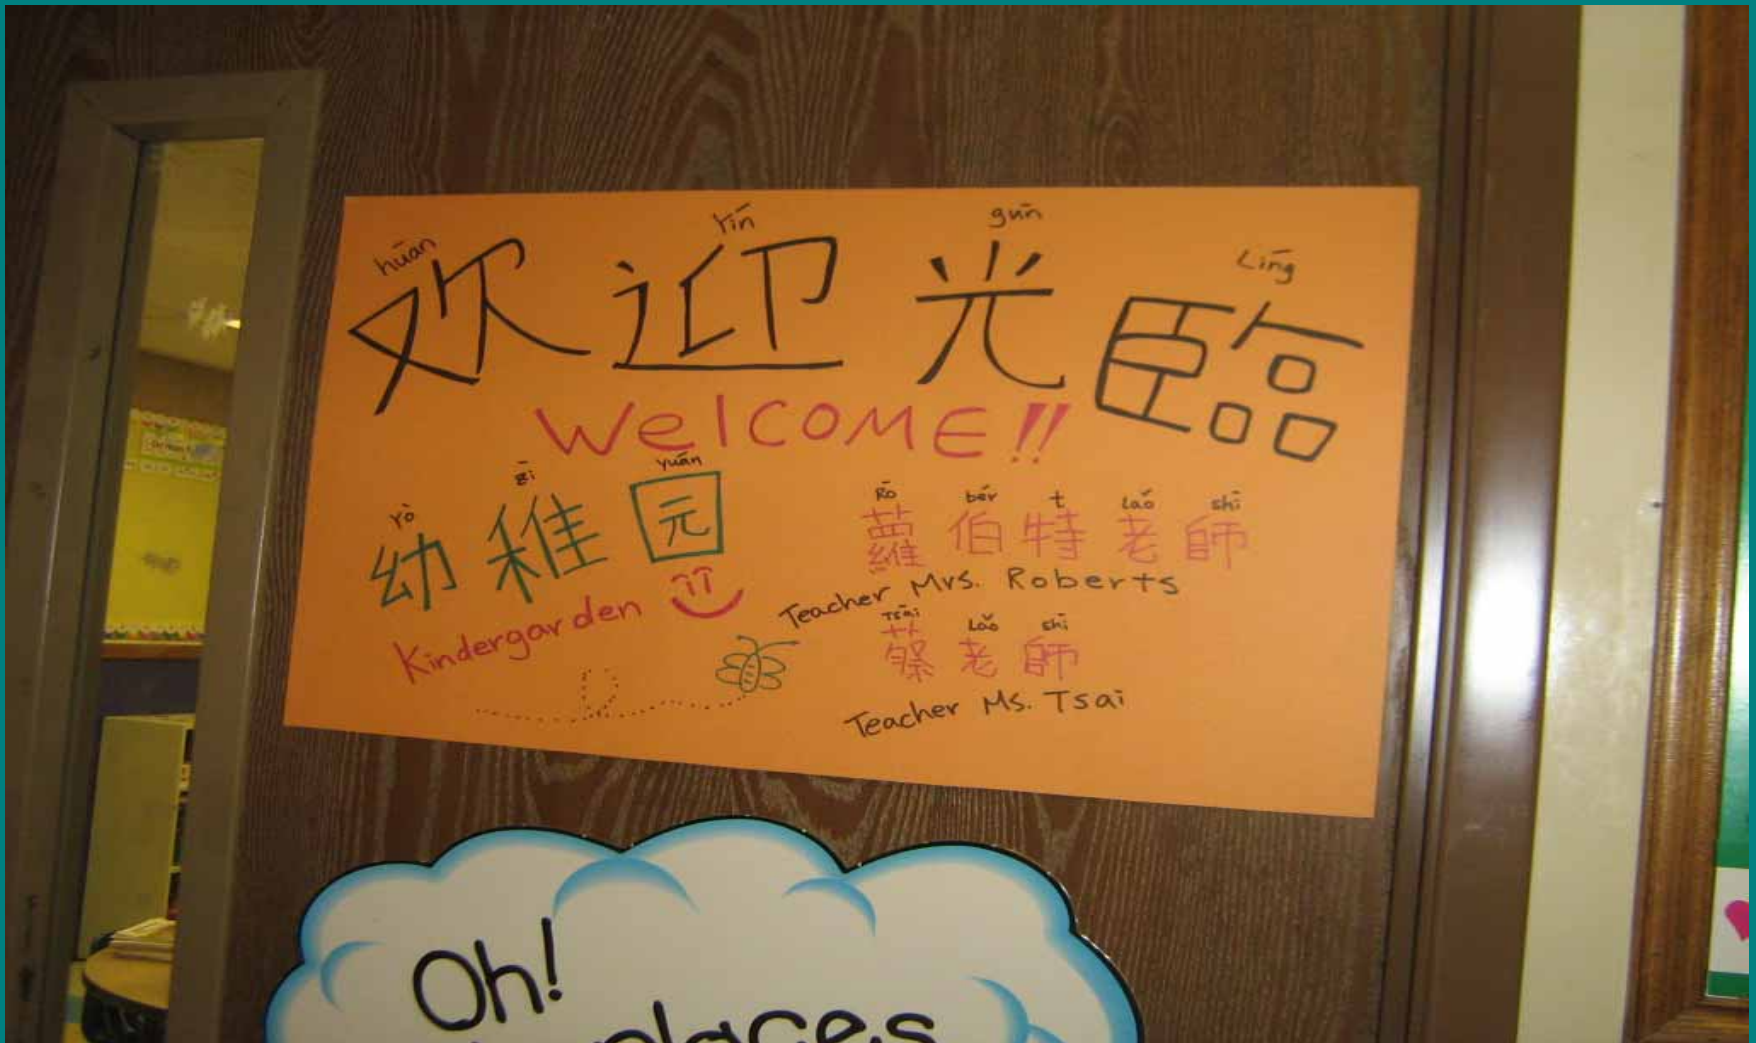 hūan Yīn guīn Líng
欢迎光臨
Welcome!!
Yò gī Yuán
幼稚园
Kindergarden
Ró bér t Laǒ shī
蘿伯特老師
Teacher Mrs. Roberts
Tsāi Laǒ shī
蔡老師
Teacher Ms. Tsai
Oh!
places